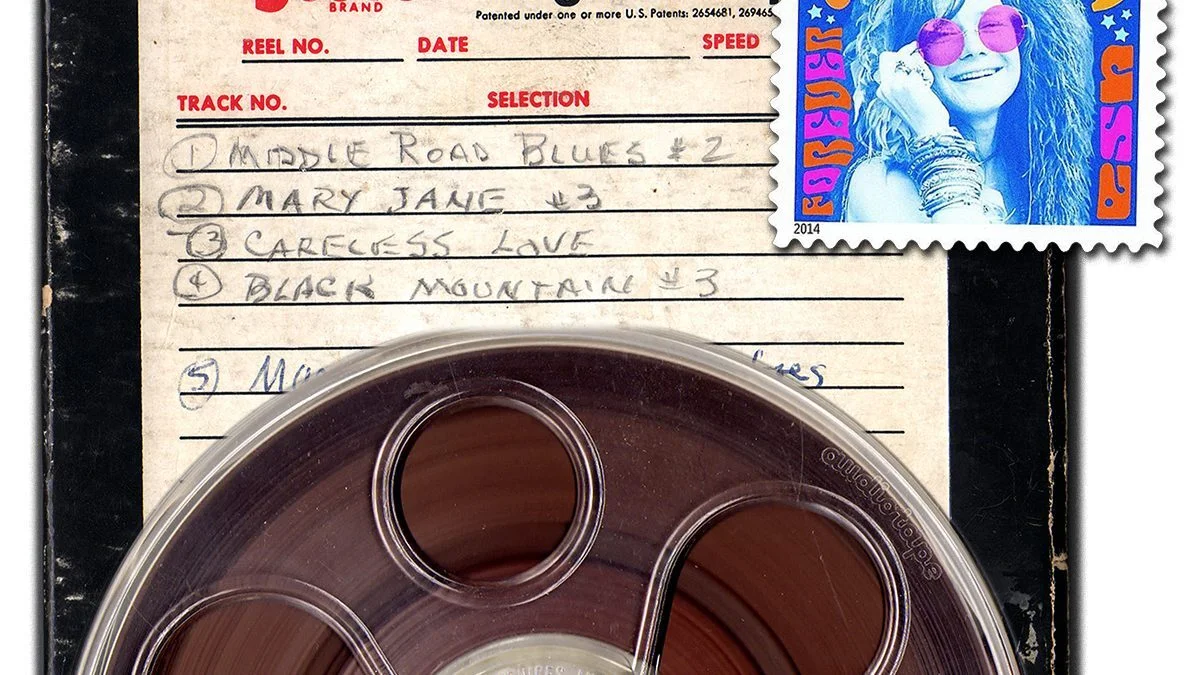 BRAND
Patented under one or more U.S. Patents: 2654681, 269465
REEL NO. DATE SPEED
TRACK NO. SELECTION
① MIDDLE ROAD BLUES #2
② MARY JANE #3
③ CARELESS LOVE
④ BLACK MOUNTAIN #3
⑤
FOREVER
USA
2014
audiotape